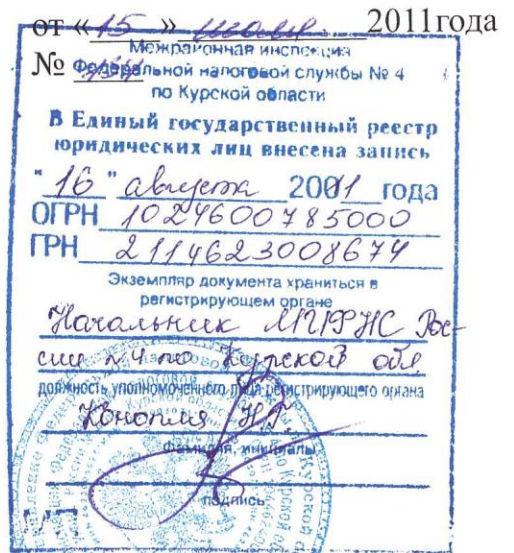 от « 15 » июля 2011года
Межрайонная инспекция
№ Федеральной налоговой службы № 4
по Курской области
В Единый государственный реестр
юридических лиц внесена запись
"16" августа 2011 года
ОГРН 1024600785000
ГРН 2114623008674
Экземпляр документа храниться в
регистрирующем органе
Начальник МИФНС Рос-
сии №4 по Курской обл
должность уполномоченного лица регистрирующего органа
Конопля Н.Г.
фамилия, инициалы
подпись
МП